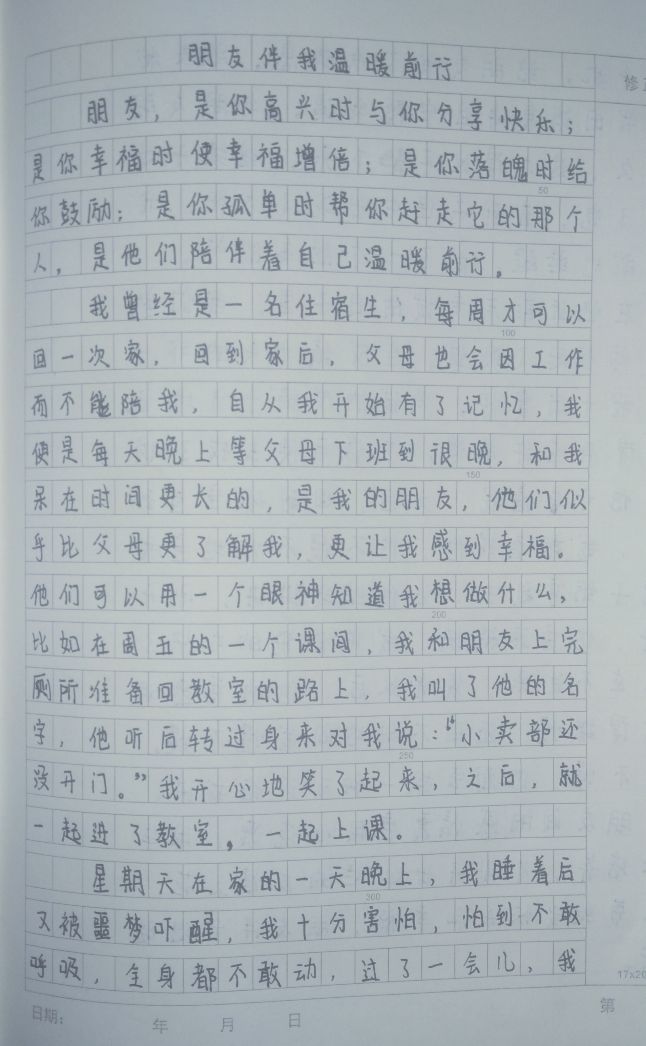 朋友伴我温暖前行
修
朋友，是你高兴时与你分享快乐；
是你幸福时使幸福增倍；是你落魄时给
你鼓励；是你孤单时帮你赶走它的那个
50
人，是他们陪伴着自己温暖前行。
我曾经是一名住宿生，每周才可以
100
回一次家，回到家后，父母也会因工作
而不能陪我，自从我开始有了记忆，我
便是每天晚上等父母下班到很晚，和我
150
呆在时间更长的，是我的朋友，他们似
乎比父母更了解我，更让我感到幸福。
他们可以用一个眼神知道我想做什么，
200
比如在周五的一个课间，我和朋友上完
厕所准备回教室的路上，我叫了他的名
字，他听后转过身来对我说：“小卖部还
250
没开门。”我开心地笑了起来，之后，就
一起进了教室，一起上课。
星期天在家的一天晚上，我睡着后
300
又被噩梦吓醒，我十分害怕，怕到不敢
呼吸，全身都不敢动，过了一会儿，我
17x20
日期： 年 月 日 第